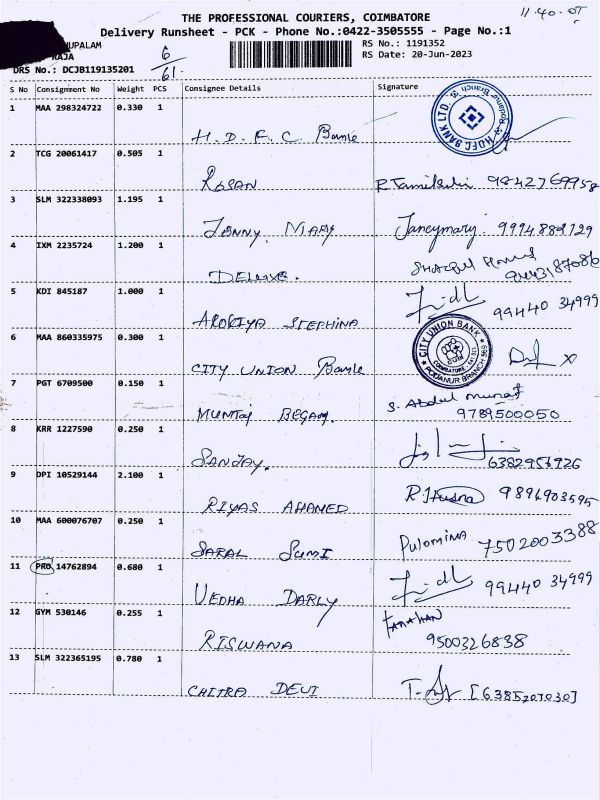 11.40.07
THE PROFESSIONAL COURIERS, COIMBATORE
Delivery Runsheet - PCK - Phone No.:0422-3505555 - Page No.:1
UPALAM
RAJA
6
61
RS No.: 1191352
RS Date: 20-Jun-2023
DRS No.: DCJB119135201
S No Consignment No Weight PCS Consignee Details Signature
1 MAA 298324722 0.330 1
H.D.F.C. Bank
HDFC BANK LTD.
Podanur Branch
2 TCG 20061417 0.505 1
ROSAN
3 SLM 322338093 1.195 1
JENNY. MARY Jancymary. 9994888129
4 IXM 2235724 1.200 1
DELUXE.
5 KDI 845187 1.000 1
AROKIYA STEPHINA 99440 34999
6 MAA 860335975 0.300 1
CITY UNION Bank
CITY UNION BANK
COIMBATORE 641 023
PODANUR BRANCH 569
7 PGT 6709500 0.150 1
MUMTAJ BEGAM. S. Abdul munaf
9789500050
8 KRR 1227590 0.250 1
SANJAY. 6382956926
9 DPI 10529144 2.100 1
RIYAS AHAMED 9894903595
10 MAA 600076707 0.250 1
SARAL SUMI Pulomina 7502003388
11 PRO 14762894 0.680 1
VEDHA DARLY 99440 34999
12 GYM 530146 0.255 1
RISWANA 9500326838
13 SLM 322365195 0.780 1
CHITRA DEVI